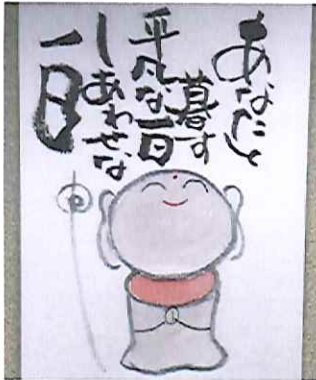 あなたと
暮す
平凡な一日
しあわせな
一日